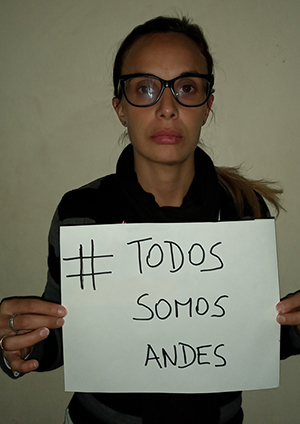 # TODOS
SOMOS
ANDES